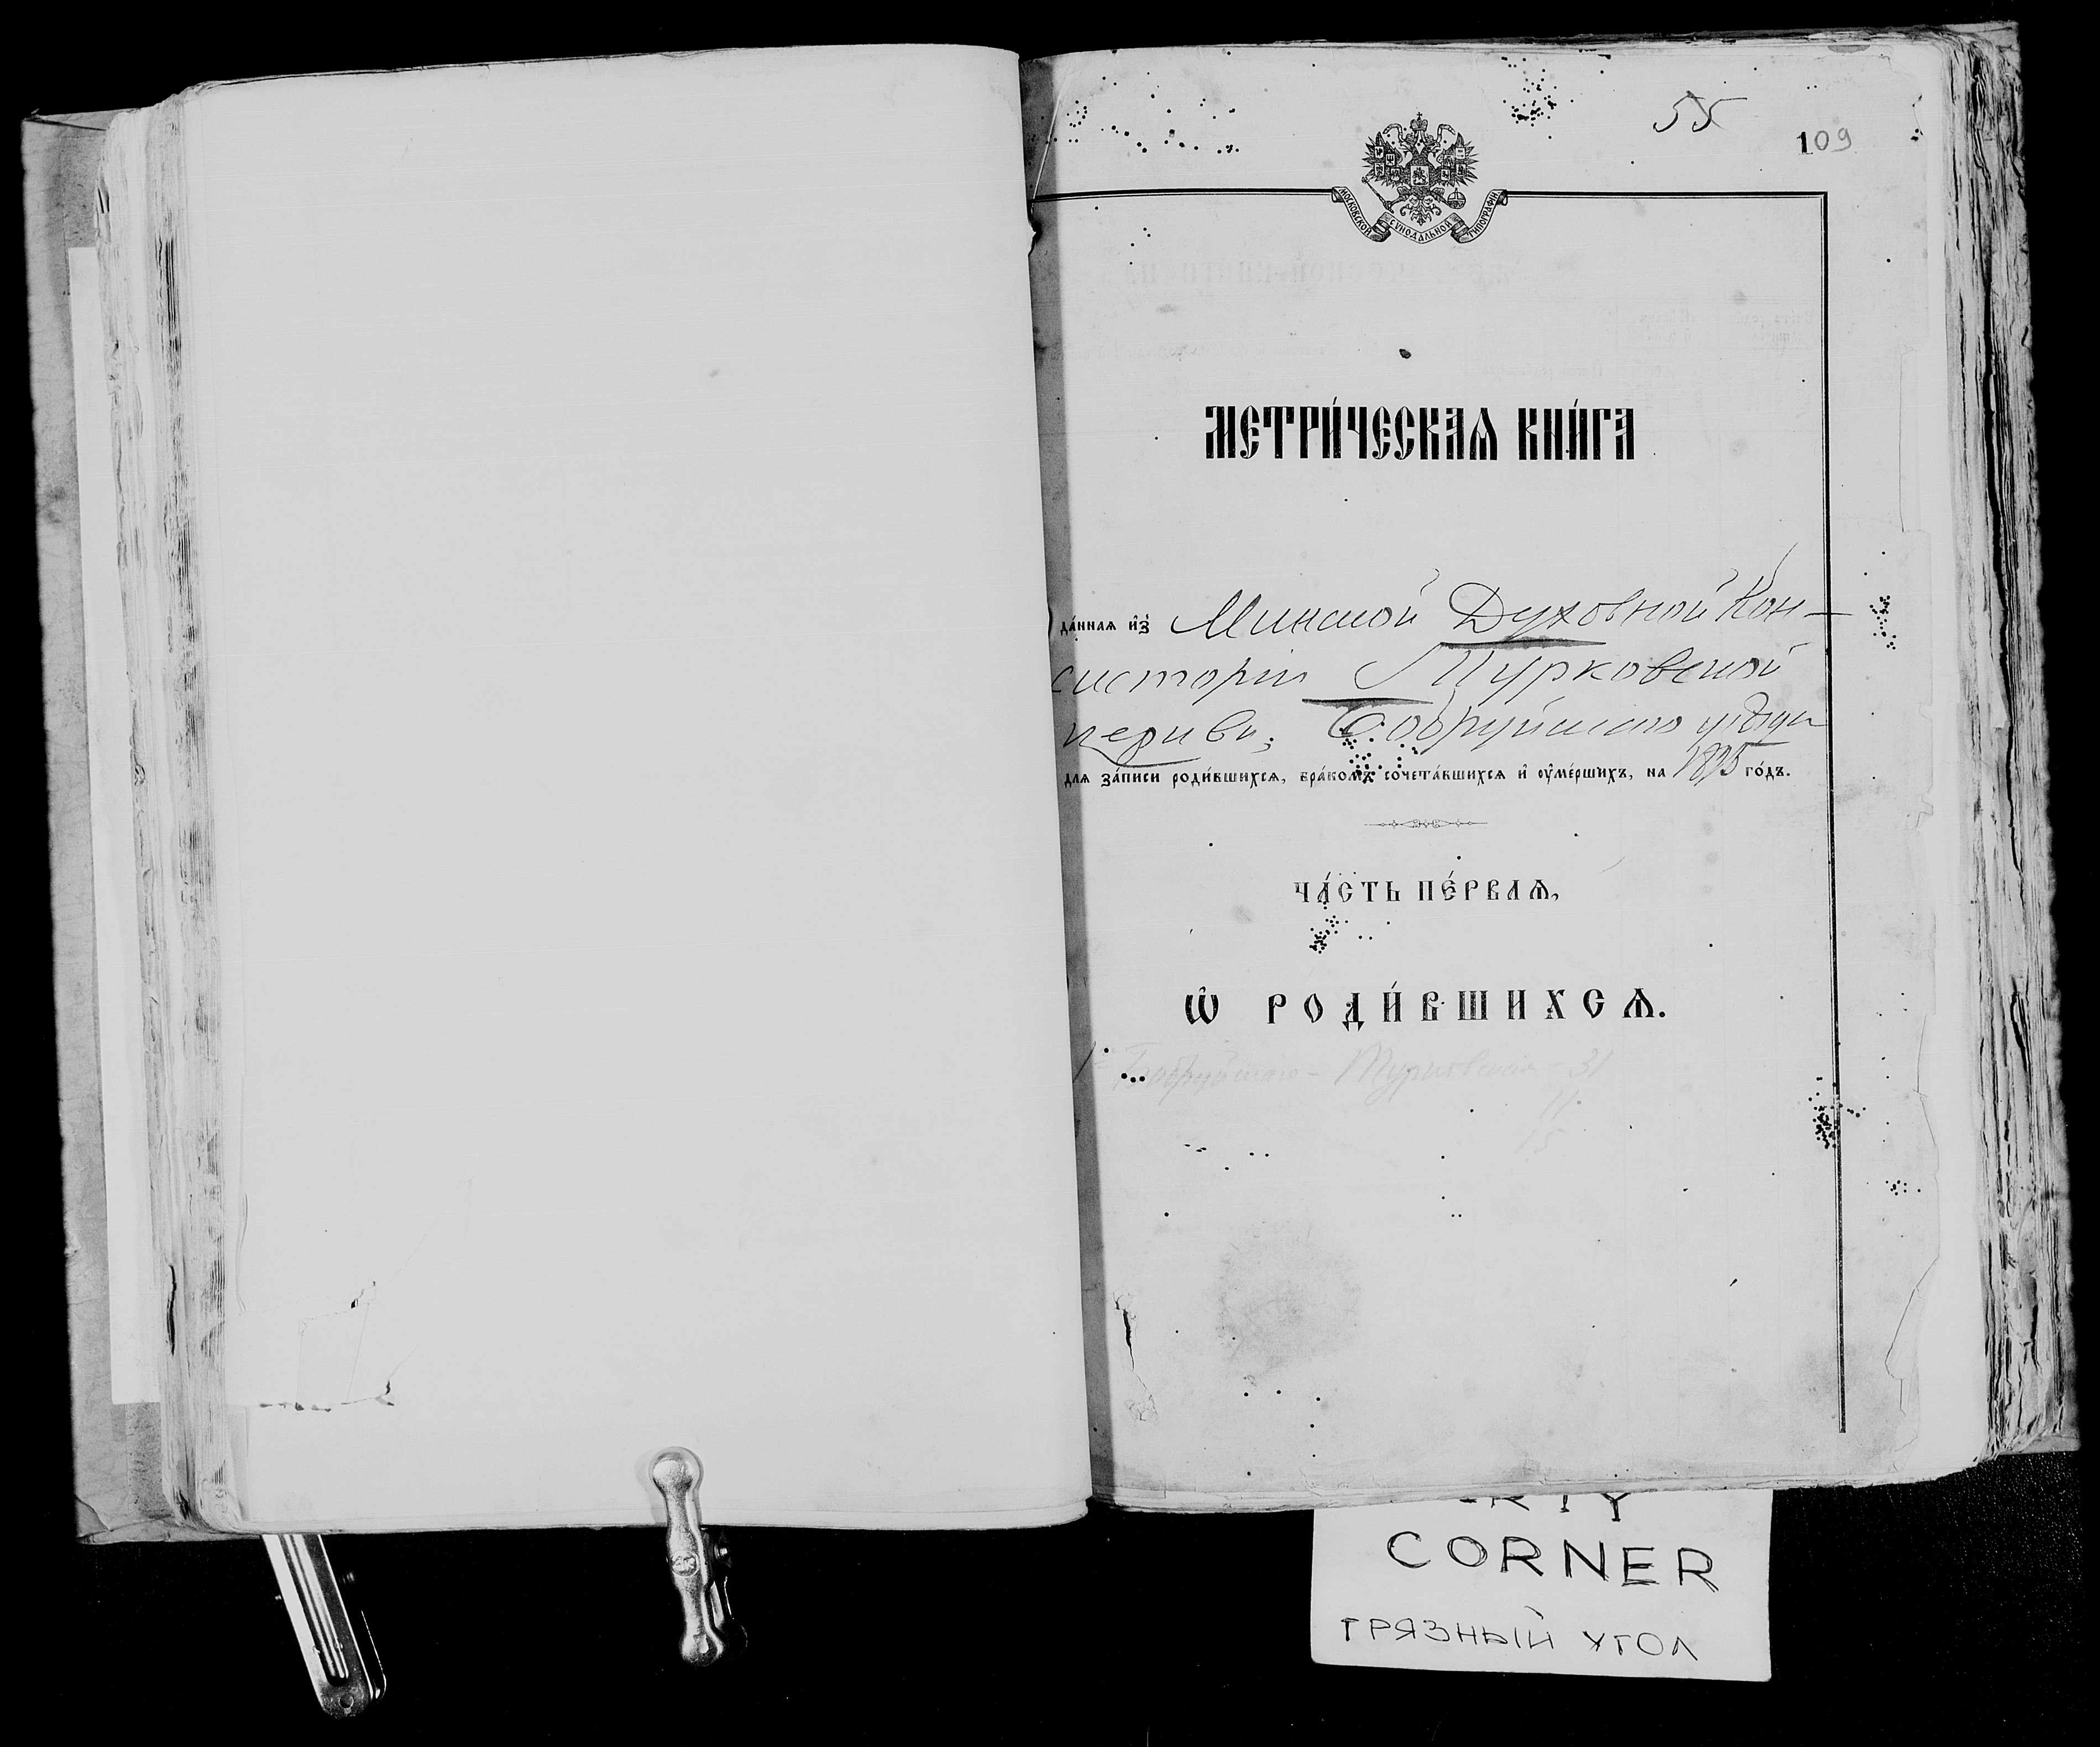 55
109
МОСКОВСКОЙ СУНОДАЛЬНОЙ ТИПОГРАФІИ
МЕТРИ́ЧЕСКАѦ КНИ́ГА
да́нная и҆з̾ Минской Духовной Кон-
систоріи Турковской
церкви, Бобруйскаго уѣзда
для за́писи роди́вшихсѧ, бра́комъ сочета́вшихсѧ и҆ ᲂу҆ме́ршихъ, на 1895 го́дъ.
ЧА́СТЬ ПЕ́РВАѦ,
Ѡ҆ РОДИ́ВШИХСѦ.
Бобруйскаго - Турковская - 31
11
15
CORNER
ГРЯЗНЫЙ УГОЛ